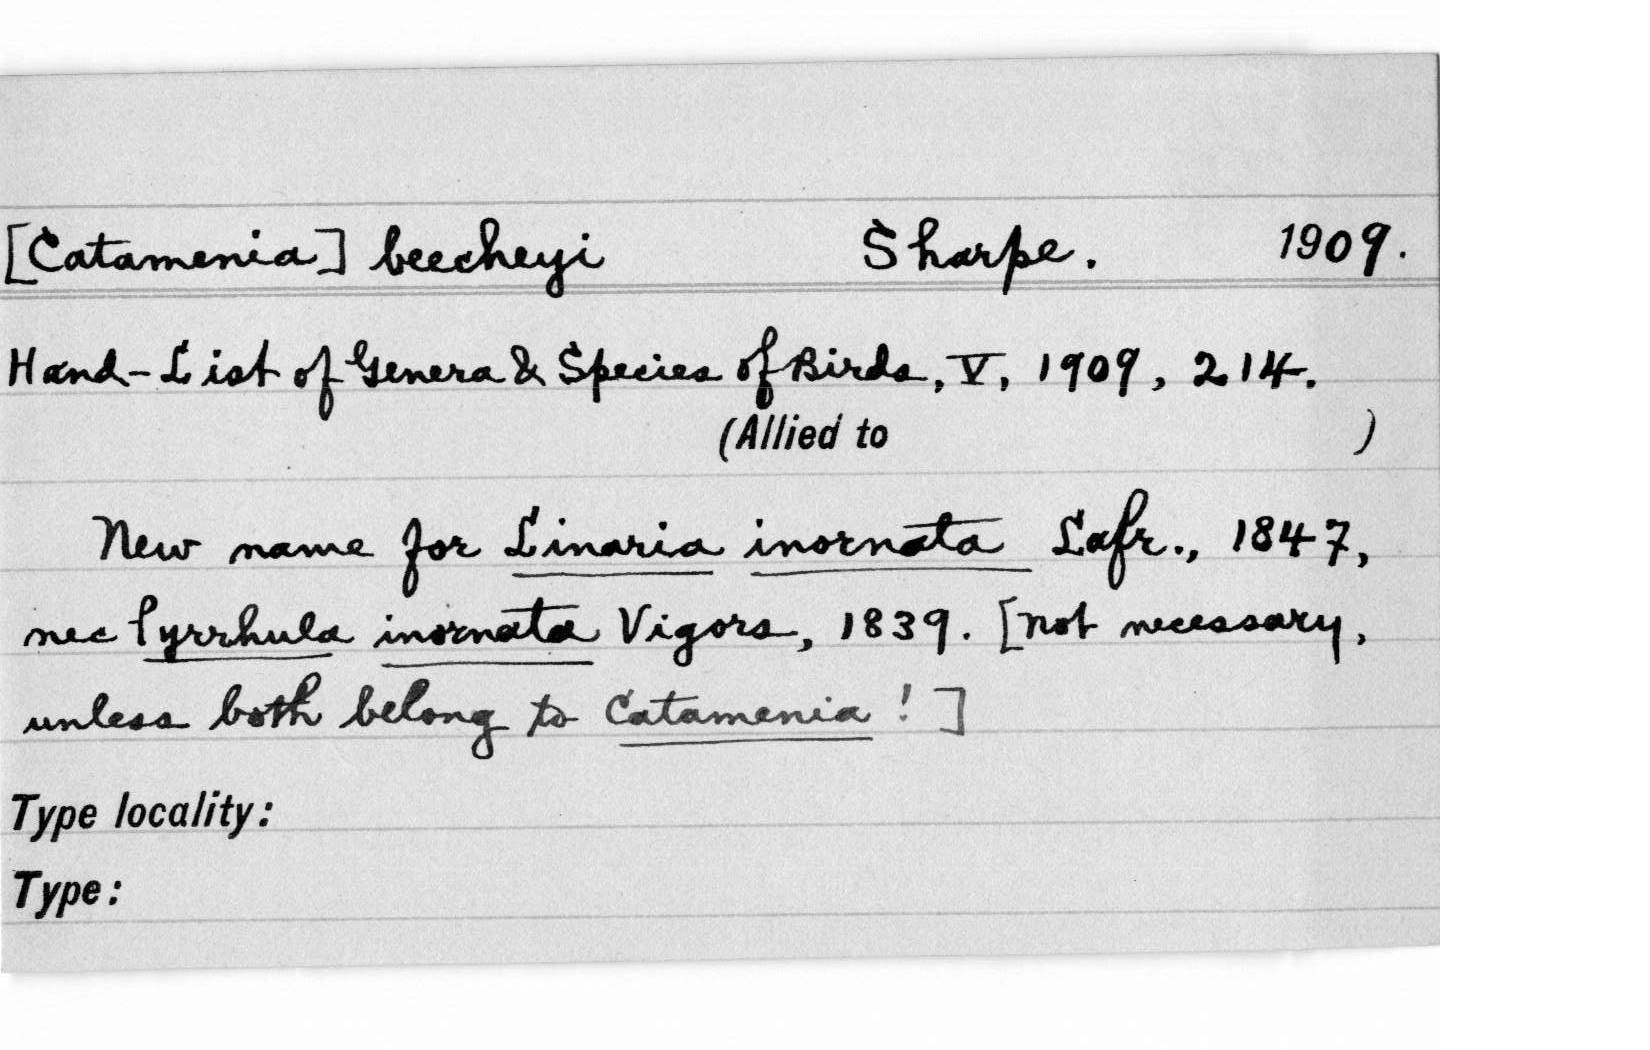 [Catamenia] beecheyi Sharpe. 1909.
Hand-List of Genera & Species of Birds, V, 1909, 214.
(Allied to )
New name for Linaria inornata Lafr., 1847,
nec Pyrrhula inornata Vigors, 1839. [not necessary,
unless both belong to Catamenia ! ]
Type locality:
Type: